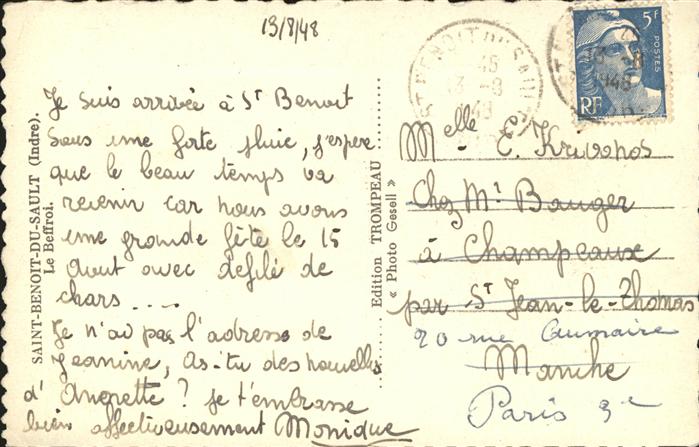 13/8/48
Je suis arrivée à St Benoit
sous une forte pluie, j'espère
que le beau temps va
revenir car nous avons
une grande fête le 15
Aout avec defilé de
chars....
Je n'ai pas l'adresse de
Jeanine, As-tu des nouvelles
d'Angette ? Je t'embrasse
bien affectueusement Monique
SAINT-BENOIT-DU-SAULT (Indre).
Le Beffroi.
Edition TROMPEAU
« Photo Gesell »
ST BENOIT DU SAULT
13 -8
48
5F
POSTES
RF
Melle E. Krivonos
Chez Mr Bauger
à Champeaux
par St Jean-le-Thomas
20 rue Aumaire
Manche
Paris 3e